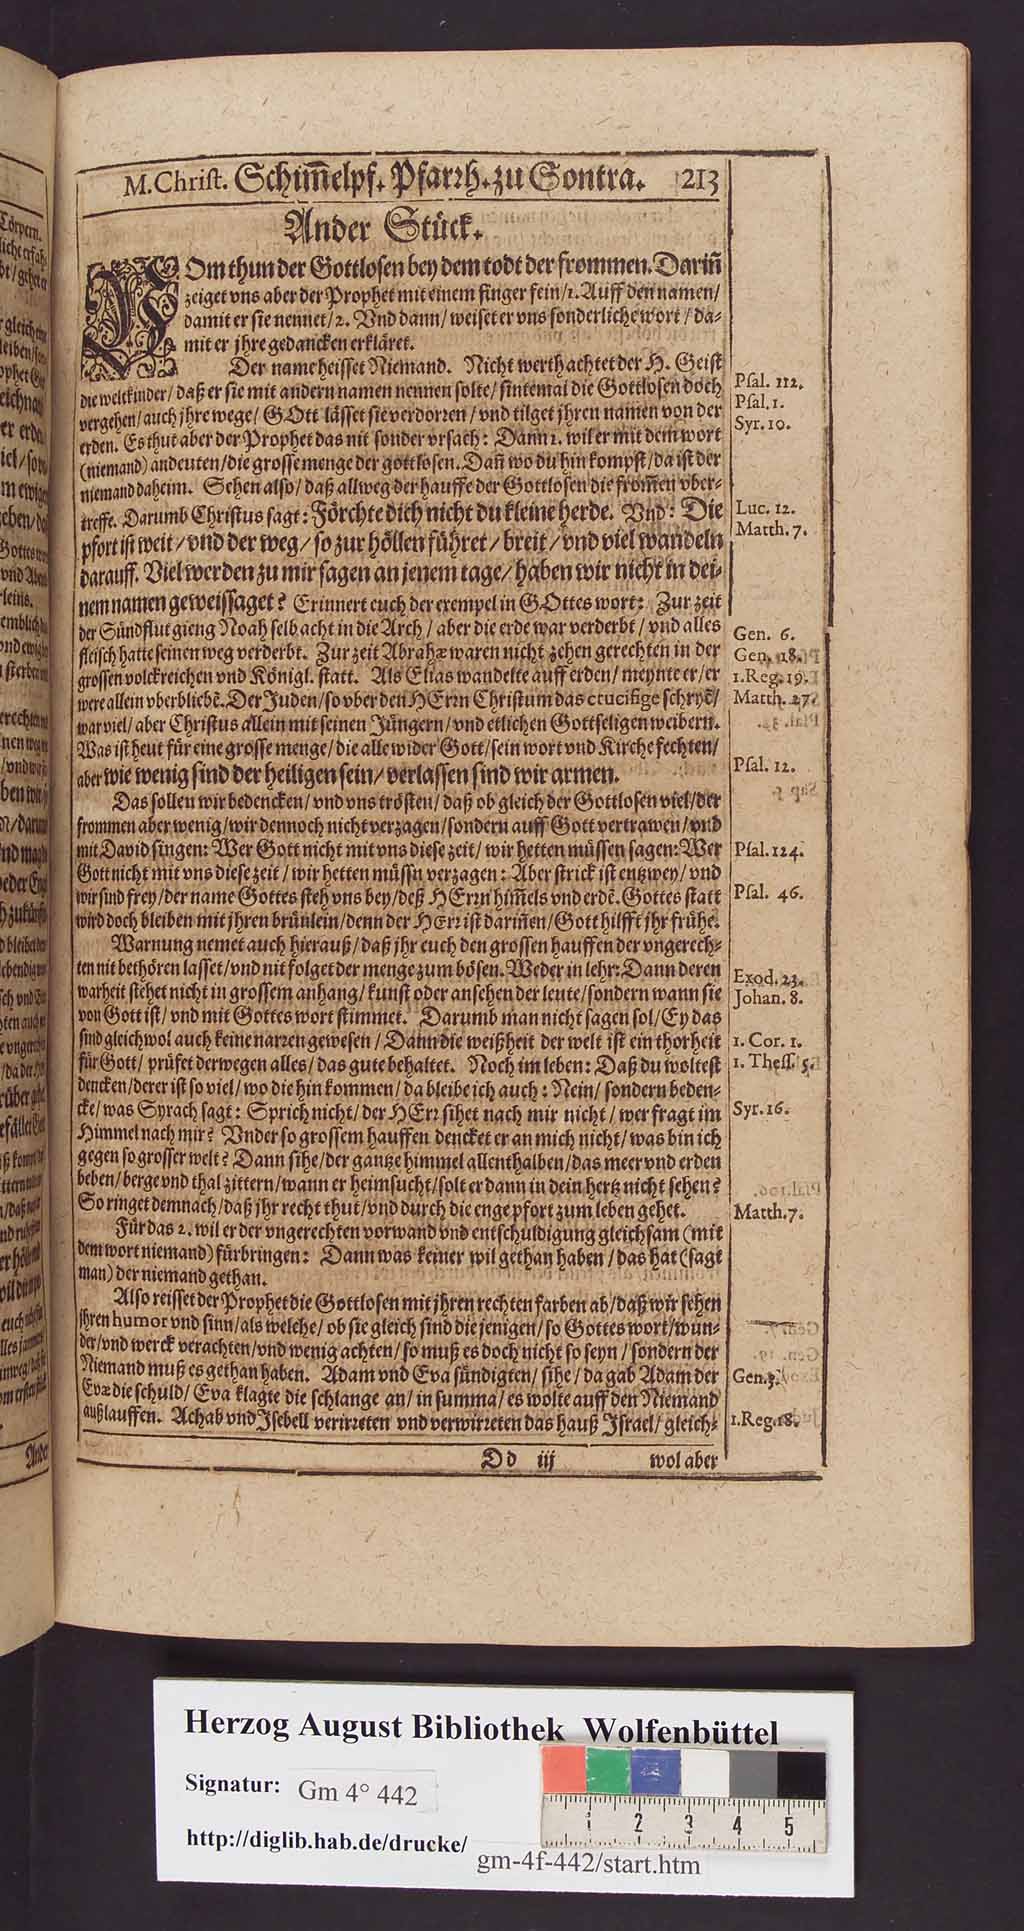 M. Christ. Schim̃elpf. Pfarrh. zu Sontra. 213
Ander Stück.
VOm thun der Gottlosen bey dem todt der frommen. Dariñ
zeiget vns aber der Prophet mit einem finger fein/ 1. Auff den namen/
damit er sie nennet/ 2. Vnd dann/ weiset er vns sonderliche wort/ da-
mit er jhre gedancken erkläret.
Der name heisset Niemand. Nicht werth achtet der H. Geist
die weltkinder/ daß er sie mit andern namen nennen solte/ sintemal die Gottlosen doch
vergehen/ auch jhre wege/ GOtt lässet sie verdorren/ vnd tilget jhren namen von der
erden. Es thut aber der Prophet das nit sonder vrsach: Dann 1. wil er mit dem wort
(niemand) andeuten/ die grosse menge der gottlosen. Dañ wo du hin kompst/ da ist der
niemand daheim. Sehen also/ daß allweg der hauffe der Gottlosen die from̃en vber-
treffe. Darumb Christus sagt: Förchte dich nicht du kleine herde. Vnd: Die
pfort ist weit/ vnd der weg/ so zur höllen führet/ breit/ vnd viel wandeln
darauff. Viel werden zu mir sagen an jenem tage/ haben wir nicht in dei-
nem namen geweissaget? Erinnert euch der exempel in GOttes wort: Zur zeit
der Sündflut gieng Noah selb acht in die Arch/ aber die erde war verderbt/ vnd alles
fleisch hatte seinen weg verderbt. Zur zeit Abrahæ waren nicht zehen gerechten in der
grossen volckreichen vnd Königl. statt. Als Elias wandelte auff erden/ meynte er/ er
were allein vberbliebẽ. Der Juden/ so vber den HErrn Christum das crucifige schryẽ/
war viel/ aber Christus allein mit seinen Jüngern/ vnd etlichen Gottseligen weibern.
Was ist heut für eine grosse menge/ die alle wider Gott/ sein wort vnd Kirche fechten/
aber wie wenig sind der heiligen sein/ verlassen sind wir armen.
Das sollen wir bedencken/ vnd vns trösten/ daß ob gleich der Gottlosen viel/ der
frommen aber wenig/ wir dennoch nicht verzagen/ sondern auff Gott vertrawen/ vnd
mit David singen: Wer Gott nicht mit vns diese zeit/ wir hetten müssen sagen: Wer
Gott nicht mit vns diese zeit/ wir hetten müssn verzagen: Aber strick ist entzwey/ vnd
wir sind frey/ der name Gottes steh vns bey/ deß HErrn him̃els vnd erdẽ. Gottes statt
wird doch bleiben mit jhren brünlein/ denn der HErr ist dariñen/ Gott hilfft jhr frühe.
Warnung nemet auch hierauß/ daß jhr euch den grossen hauffen der vngerech-
ten nit bethören lasset/ vnd nit folget der menge zum bösen. Weder in lehr: Dann deren
warheit stehet nicht in grossem anhang/ kunst oder ansehen der leute/ sondern wann sie
von Gott ist/ vnd mit Gottes wort stimmet. Darumb man nicht sagen sol/ Ey das
sind gleichwol auch keine narren gewesen/ Dann die weißheit der welt ist ein thorheit
für Gott/ prüfet derwegen alles/ das gute behaltet. Noch im leben: Daß du woltest
dencken/ derer ist so viel/ wo die hin kommen/ da bleibe ich auch: Nein/ sondern beden-
cke/ was Syrach sagt: Sprich nicht/ der HErr sihet nach mir nicht/ wer fragt im
Himmel nach mir? Vnder so grossem hauffen dencket er an mich nicht/ was bin ich
gegen so grosser welt? Dann sihe/ der gantze himmel allenthalben/ das meer vnd erden
beben/ berge vnd thal zittern/ wann er heimsucht/ solt er dann in dein hertz nicht sehen?
So ringet demnach/ daß jhr recht thut/ vnd durch die enge pfort zum leben gehet.
Für das 2. wil er der vngerechten vorwand vnd entschuldigung gleichsam (mit
dem wort niemand) fürbringen: Dann was keiner wil gethan haben/ das hat (sagt
man) der niemand gethan.
Also reisset der Prophet die Gottlosen mit jhren rechten farben ab/ daß wir sehen
jhren humor vnd sinn/ als welche/ ob sie gleich sind die jenigen/ so Gottes wort/ wun-
der/ vnd werck verachten/ vnd wenig achten/ so muß es doch nicht so seyn/ sondern der
Niemand muß es gethan haben. Adam vnd Eva sündigten/ sihe/ da gab Adam der
Evæ die schuld/ Eva klagte die schlange an/ in summa/ es wolte auff den Niemand
außlauffen. Achab vnd Isebell verirreten vnd verwirreten das hauß Israel/ gleich-
Dd iij wol aber
Psal. 112.
Psal. 1.
Syr. 10.
Luc. 12.
Matth. 7.
Gen. 6.
Gen. 18.
1. Reg. 19.
Matth. 27.
Psal. 12.
Psal. 124.
Psal. 46.
Exod. 23.
Johan. 8.
1. Cor. 1.
1. Thess. 5.
Syr. 16.
Matth. 7.
Gen. 3.
1. Reg. 18.
Herzog August Bibliothek Wolfenbüttel
Signatur: Gm 4° 442
http://diglib.hab.de/drucke/
gm-4f-442/start.htm
1 2 3 4 5